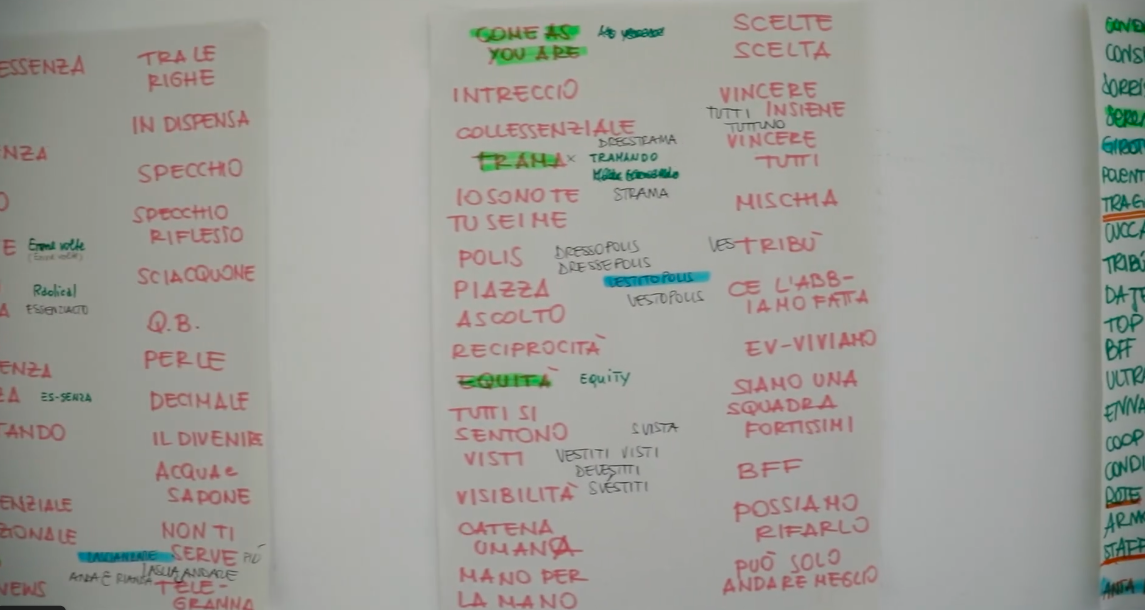 ESSENZA
NZA
O
E Emme volte
Radical
A
ENZA
A ES-SENZA
TANDO
ENZIALE
ZIONALE
NEWS
TRA LE
RIGHE
IN DISPENSA
SPECCHIO
SPECCHIO
RIFLESSO
SCIACQUONE
Q.B.
PERLE
DECIMALE
IL DIVENIRE
ACQUA e
SAPONE
NON TI
SERVE PIÙ
TELE-
GRAMMA
COME AS
YOU ARE
INTRECCIO
COLLESSENZIALE
DRESSTRAMA
TRAMA x TRAMANDO
STRAMA
IO SONO TE
TU SEI ME
POLIS DRESSOPOLIS
DRESSEPOLIS
VESTITOPOLIS
PIAZZA VESTOPOLIS
ASCOLTO
RECIPROCITÀ
EQUITÀ EQUITY
TUTTI SI
SENTONO SVISTA
VISTI VESTITI VISTI
DEVESTITI
VISIBILITÀ SVESTITI
CATENA
UMANA
MANO PER
LA MANO
SCELTE
SCELTA
VINCERE
TUTTI INSIEME
TUTTUNO
VINCERE
TUTTI
MISCHIA
VESTRIBÙ
CE L'ABB-
IAMO FATTA
EV-VIVIAMO
SIAMO UNA
SQUADRA
FORTISSIMI
BFF
POSSIAMO
RIFARLO
PUÒ SOLO
ANDARE MEGLIO
CONS
GIROT
TRIBÙ
DATE
TOP
BFF
ULTRA
ENNA
COOP
CONDI
DOTE
ARMO
STAFF